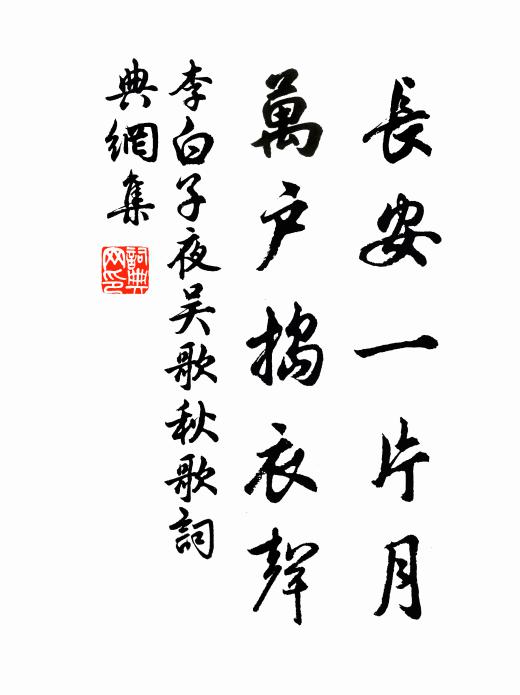 長安一片月
萬户搗衣聲
李白子夜吴歌秋歌詞
典網集
詞典
网印